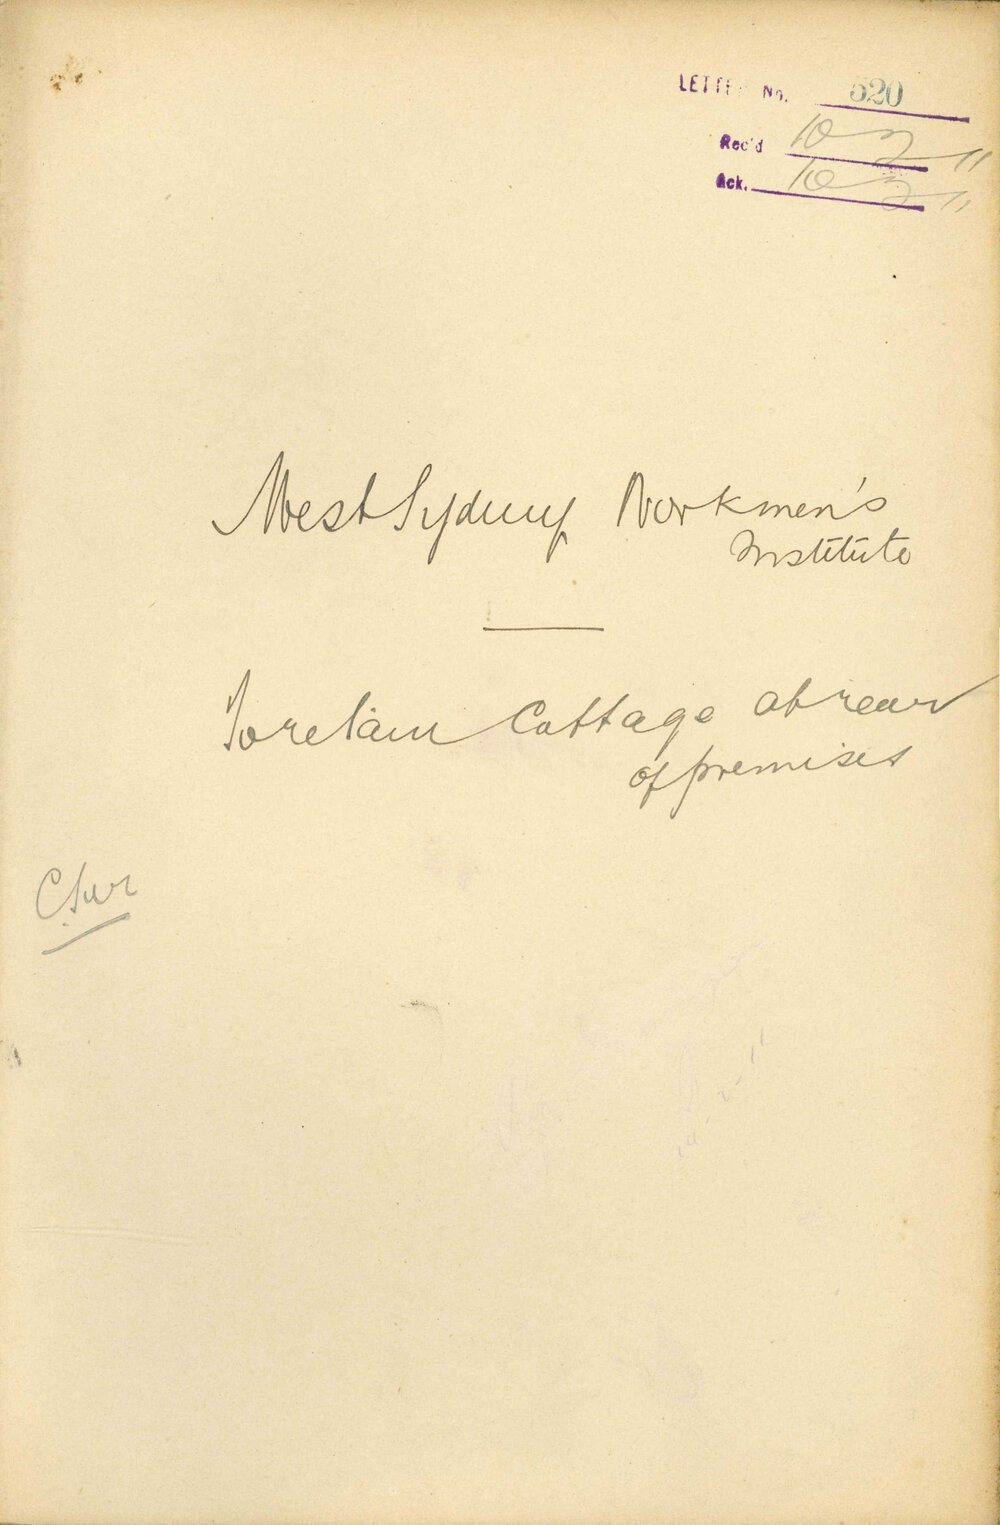 LETTER No. 520
Rec'd 10 2 11
Ack. 10 2 11
West Sydney Workmen's
Institute
To retain Cottage at rear
of premises